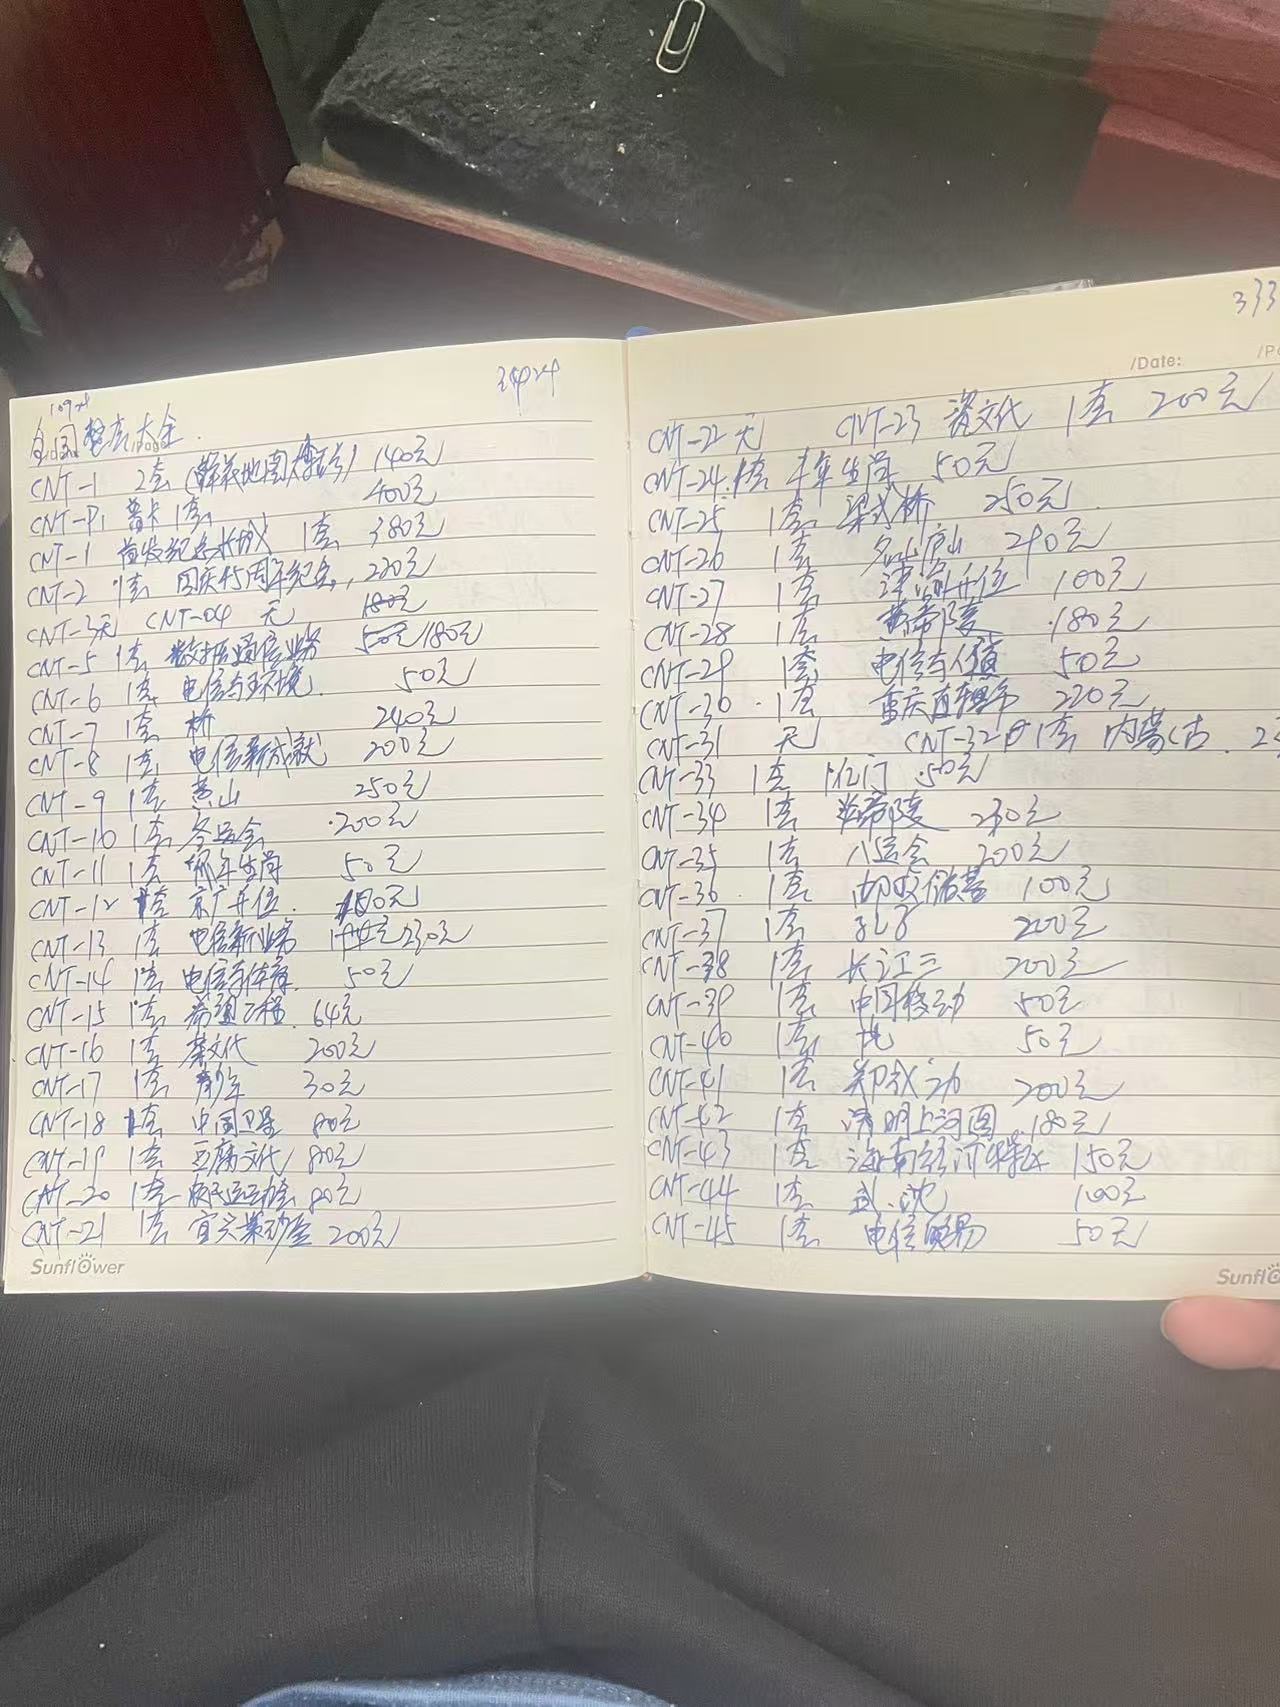 3424
全国整卡大全
CNT-1 2套 140元
CNT-P1 普卡1套 400元
CNT-1 首发纪念长城 1套 380元
CNT-2 1套 国庆45周年纪念 220元
CNT-3无 CNT-04 无 180元
CNT-5 1套 数据通信业务 50元 180元
CNT-6 1套 电信与环境 50元
CNT-7 1套 桥 240元
CNT-8 1套 电信新成就 200元
CNT-9 1套 黄山 250元
CNT-10 1套 冬运会 200元
CNT-11 1套 年生肖 50元
CNT-12 1套 京广升位
CNT-13 1套 电信新业务 230元
CNT-14 1套 电信与体育 50元
CNT-15 1套 希望工程 64元
CNT-16 1套 茶文化 200元
CNT-17 1套 青少年 30元
CNT-18 1套 中国卫星 80元
CNT-19 1套 豆腐文化 80元
CNT-20 1套 农民运动会 80元
CNT-21 1套 宜兴紫砂壶 200元
Sunflower
333
/Date:
CNT-22 无 CNT-23 瓷文化 1套 200元
CNT-24 1套 牛年生肖 50元
CNT-25 1套 梁式桥 250元
CNT-26 1套 名山庐山 290元
CNT-27 1套 升位 100元
CNT-28 1套 黄帝陵 180元
CNT-29 1套 电信与人 50元
CNT-30 1套 重庆直辖市 220元
CNT-31 无 CNT-32 1套 内蒙古
CNT-33 1套 50元
CNT-34 1套 帝陵 230元
CNT-35 1套 八运会 200元
CNT-36 1套 邮政储蓄 100元
CNT-37 1套 孔子 200元
CNT-38 1套 长江三 200元
CNT-39 1套 中国移动 50元
CNT-40 1套 50元
CNT-41 1套 郑成功 200元
CNT-42 1套 清明上河图 180元
CNT-43 1套 海南经济特区 150元
CNT-44 1套 武.沈 100元
CNT-45 1套 电信贸易 50元